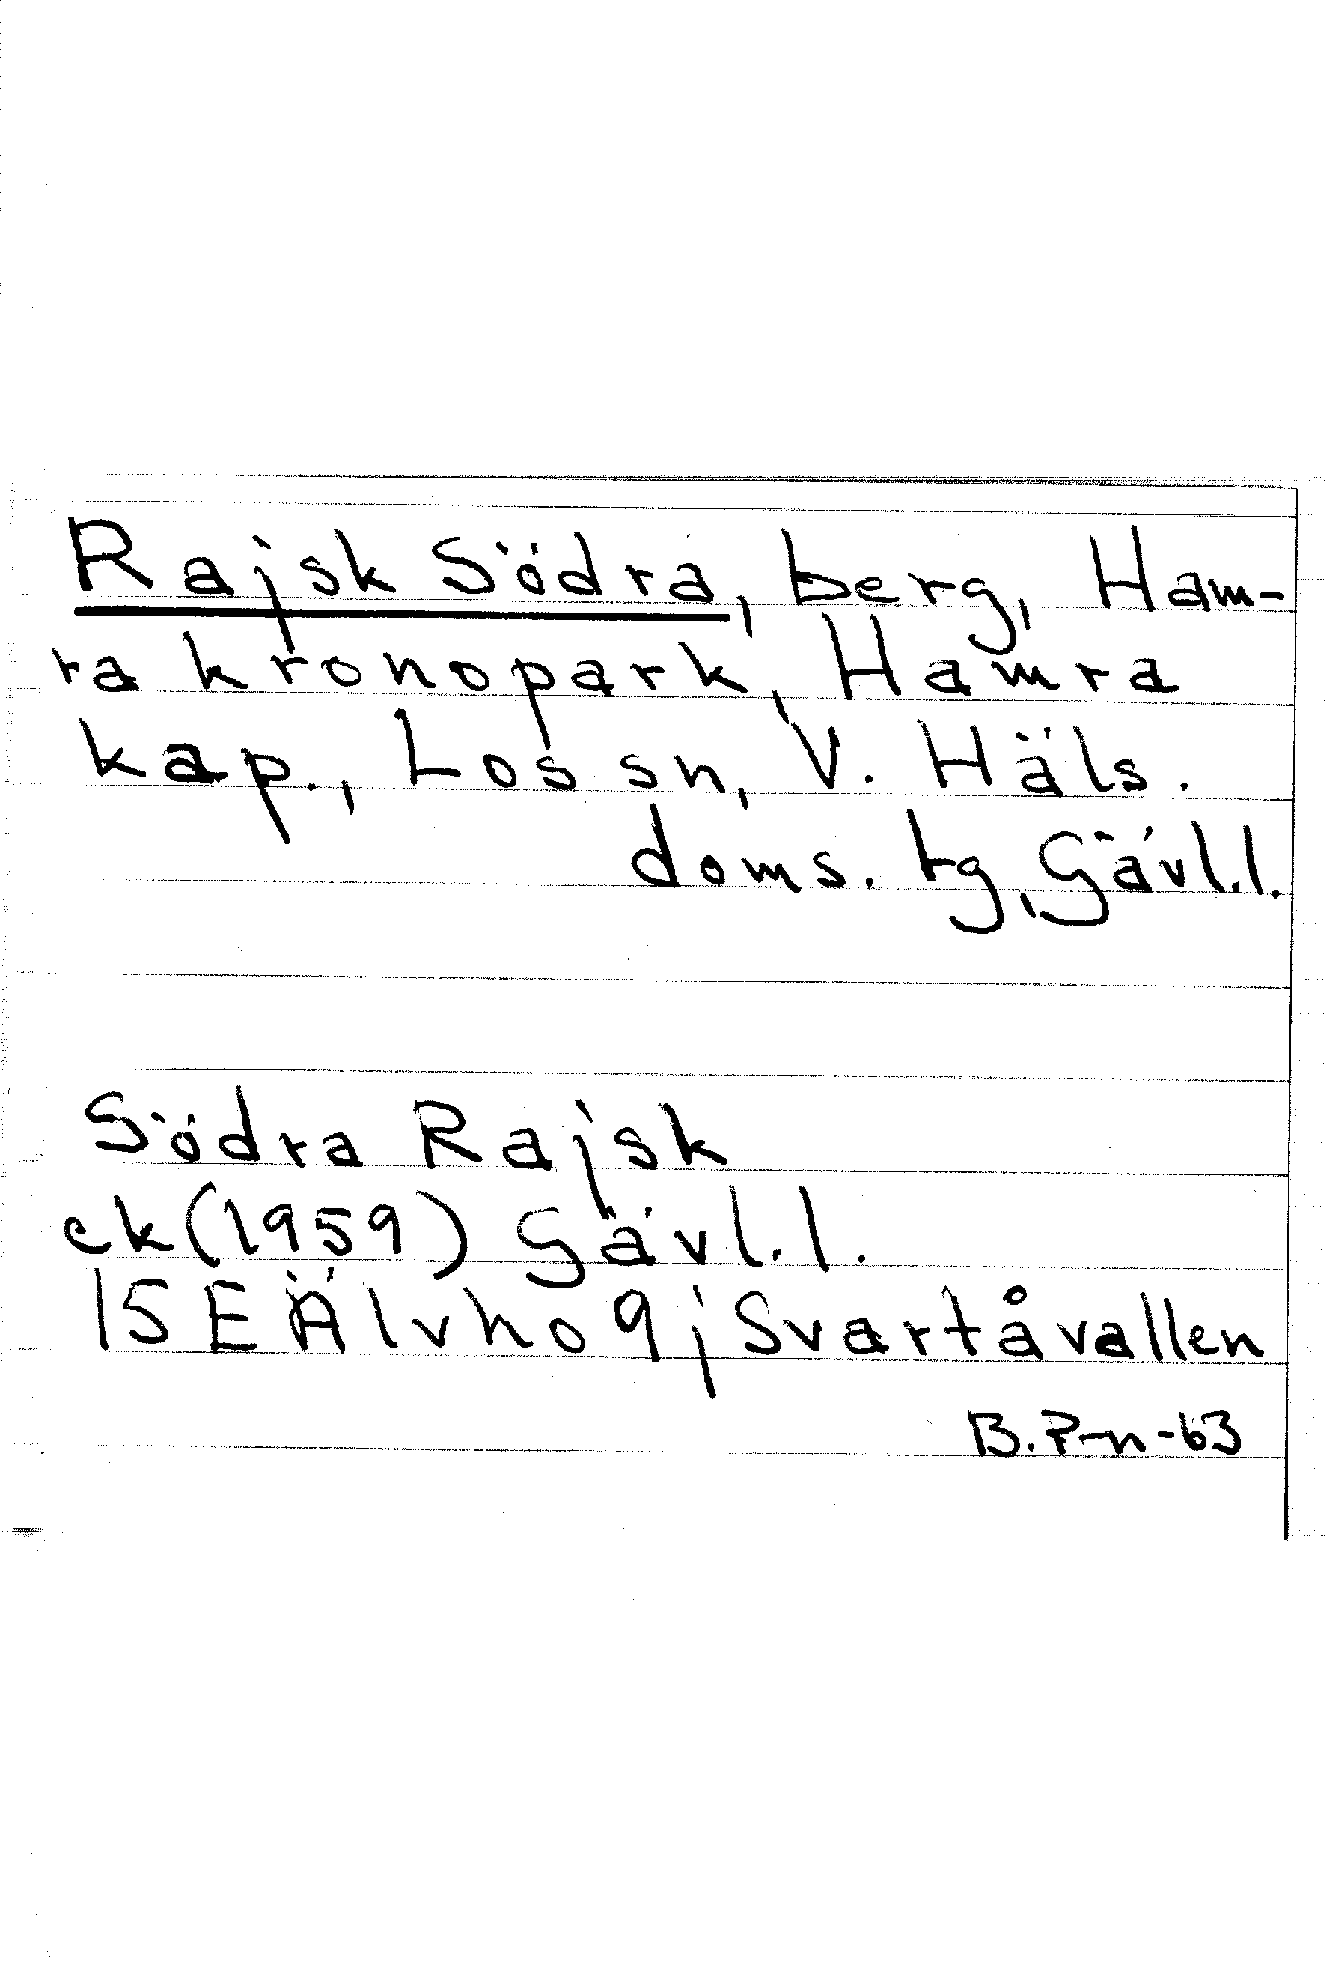 Rajsk Södra, berg, Ham-
ra kronopark, Hamra
kap., Los sn, V. Häls.
doms. tg, Gävl.l.
Södra Rajsk
ek (1959) Gävl.l.
15 E Älvho 9j Svartåvallen
B.P-n-63